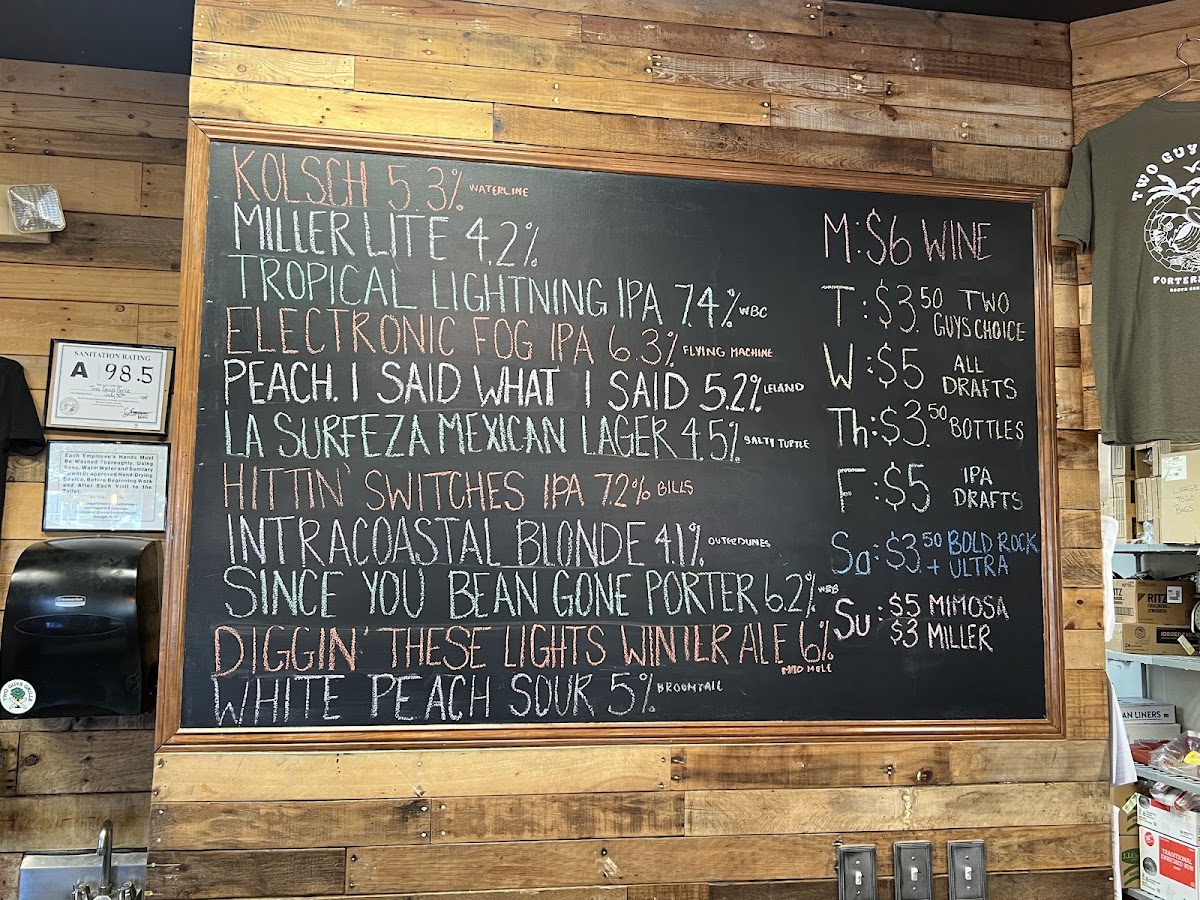 KOLSCH 5.3% WATERLINE
MILLER LITE 4.2%
TROPICAL LIGHTNING IPA 7.4% WBC
ELECTRONIC FOG IPA 6.3% FLYING MACHINE
PEACH. I SAID WHAT I SAID 5.2% LELAND
LA SURFEZA MEXICAN LAGER 4.5% SALTY TURTLE
HITTIN' SWITCHES IPA 7.2% BILLS
INTRACOASTAL BLONDE 4.1% OUTER DUNES
SINCE YOU BEAN GONE PORTER 6.2%
DIGGIN' THESE LIGHTS WINTER ALE 6% MAD MOLE
WHITE PEACH SOUR 5% BROOMTAIL
M: $6 WINE
T: $3.50 TWO
GUYS CHOICE
W: $5 ALL
DRAFTS
Th: $3.50 BOTTLES
F: $5 IPA
DRAFTS
Sa: $3.50 BOLD ROCK
+ ULTRA
Su: $5 MIMOSA
$3 MILLER
SANITATION RATING
A 98.5
Each Employee's Hands Must
Be Washed Thoroughly, Using
Soap, Warm Water and Sanitary
Towel Or Approved Hand-Drying
Device, Before Beginning Work
and After Each Visit to the
Toilet.
TWO GUYS GRILLE
TWO GUY
PORTER
RITZ
RITZ
IODIZED
AN LINERS
TRADITIONAL